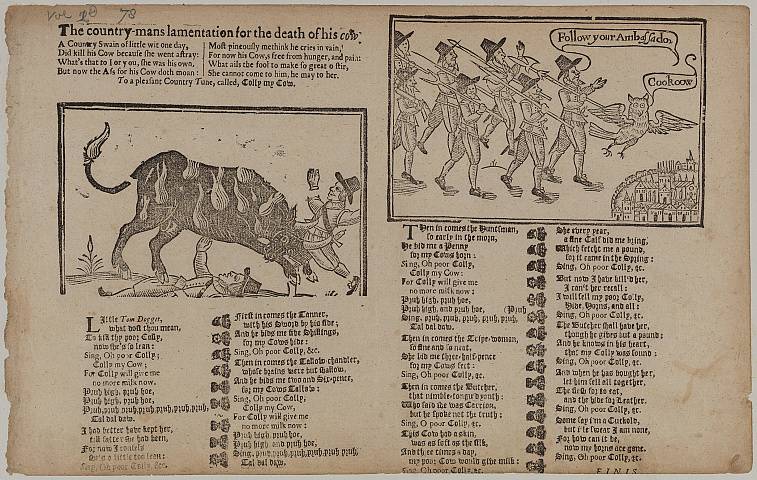 78
The country-mans lamentation for the death of his cow.
A Country Swain of little wit one day,
Did kill his Cow because she went astray:
What's that to I or you, she was his own,
But now the Ass for his Cow doth moan:
Most pineously methink he cries in vain,
For now his Cow,s free from hunger, and pain:
What ails the fool to make so great a stir,
She cannot come to him, he may to her.
To a pleasant Country Tune, called, Colly my Cow.
Little Tom Dogger,
what dost thou mean,
To kill thy poor Colly,
now she's so lean:
Sing, Oh poor Colly;
Colly my Cow;
For Colly will give me
no more milk now.
Pruh high, pruh hoe,
Pruh high, pruh hoe,
Pruh, pruh, pruh, pruh, pruh, pruh, pruh,
Tal dal daw.
I had better have kept her,
till fatter she had been,
For now I
She's a little too lean:
Sing, Oh poor Colly, &c.
First in comes the Tanner,
with his Sword by his side;
And he bids me five Shillings,
for my Cows hide:
Sing, Oh poor Colly, &c.
Then in comes the Tallow-chandler,
whose brains were but shallow,
And he bids me two and Six-pence,
for my Cows Tallow:
Sing, Oh poor Colly,
Colly my Cow,
For Colly will give me
no more milk now:
Pruh high, pruh hoe,
Pruh high and pruh hoe,
Sing, pruh, pruh, pruh, pruh, pruh, pruh,
Tal dal daw.
Follow your Ambassador
Cookoow
Then in comes the Huntsman,
so early in the morn,
He bid me a Penny
for my Cows horn:
Sing, Oh poor Colly,
Colly my Cow:
For Colly will give me
no more milk now:
Pruh high, pruh hoe,
Pruh high, and pruh hoe, (Pruh
Sing, pruh, pruh, pruh, pruh, pruh,
Tal dal daw.
Then in comes the Tripe-woman,
so fine and so neat,
She bid me three-half-pence
for my Cows feet:
Sing, Oh poor Colly, &c.
Then in comes the Butcher,
that nimble-tongu'd youth;
Who said she was Carrion,
but he spoke not the truth:
Sing, O poor Colly, &c.
This Cow had a skin,
was as soft as the silk,
And three times a day,
my poor Cow would give milk:
Sing, Oh poor Colly &c.
She every year,
a fine Calf did me bring,
Which fetcht me a pound,
for it came in the Spring:
Sing, Oh poor Colly, &c.
But now I have kill'd her,
I can't her recall:
I will sell my poor Colly,
Hide, Horns, and all:
Sing, Oh poor Colly, &c.
The Butcher shall have her,
though he gives but a pound:
And he knows in his heart,
that my Colly was sound:
Sing, Oh poor Colly, &c.
And when he has bought her,
let him sell all together,
The flesh for to eat,
and the hide for Leather:
Sing, Oh poor Colly, &c.
Some say I'm a Cuckold,
but I'le swear I am none,
For how can it be,
now my horns are gone:
Sing, Oh poor Colly, &c.
FINIS.